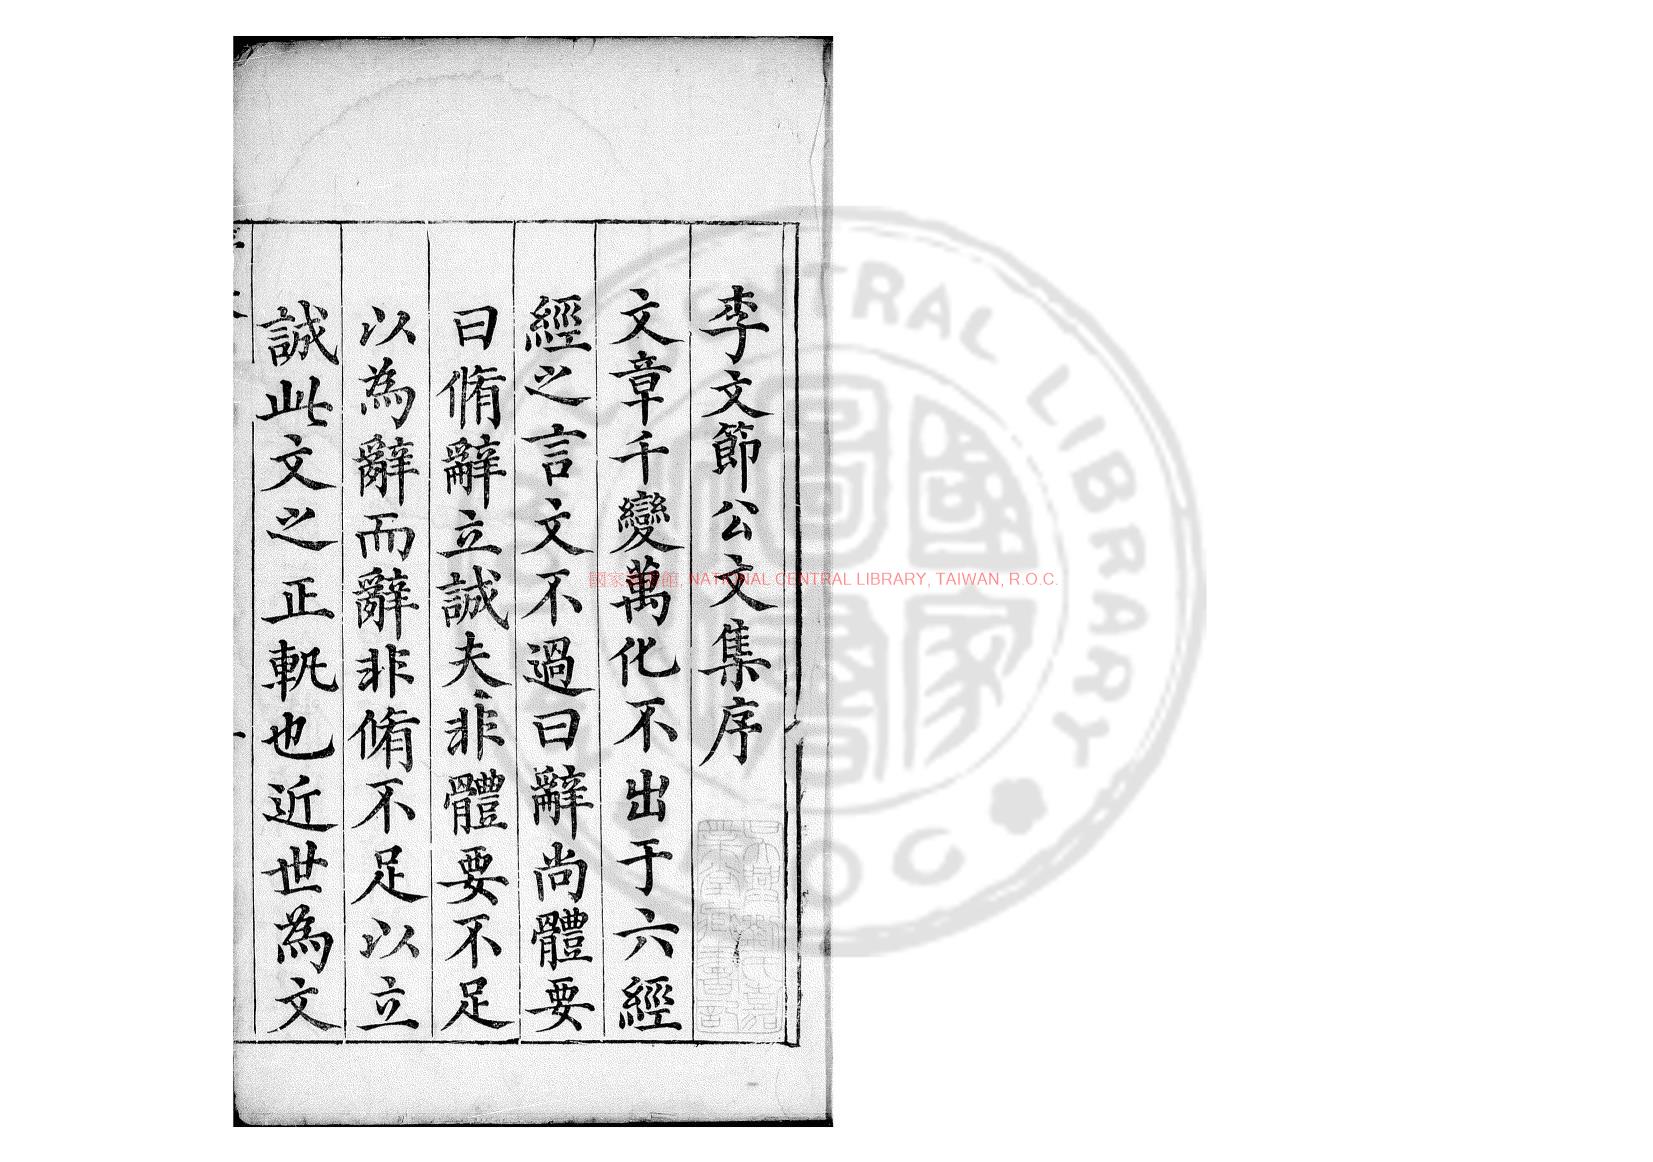 李文節公文集序
文章千變萬化不出于六經
經之言文不過曰辭尚體要
曰脩辭立誠夫非體要不足
以為辭而辭非脩不足以立
誠此文之正軌也近世為文
吳興劉氏嘉
業堂藏書記
國家圖書館, NATIONAL CENTRAL LIBRARY, TAIWAN, R.O.C.